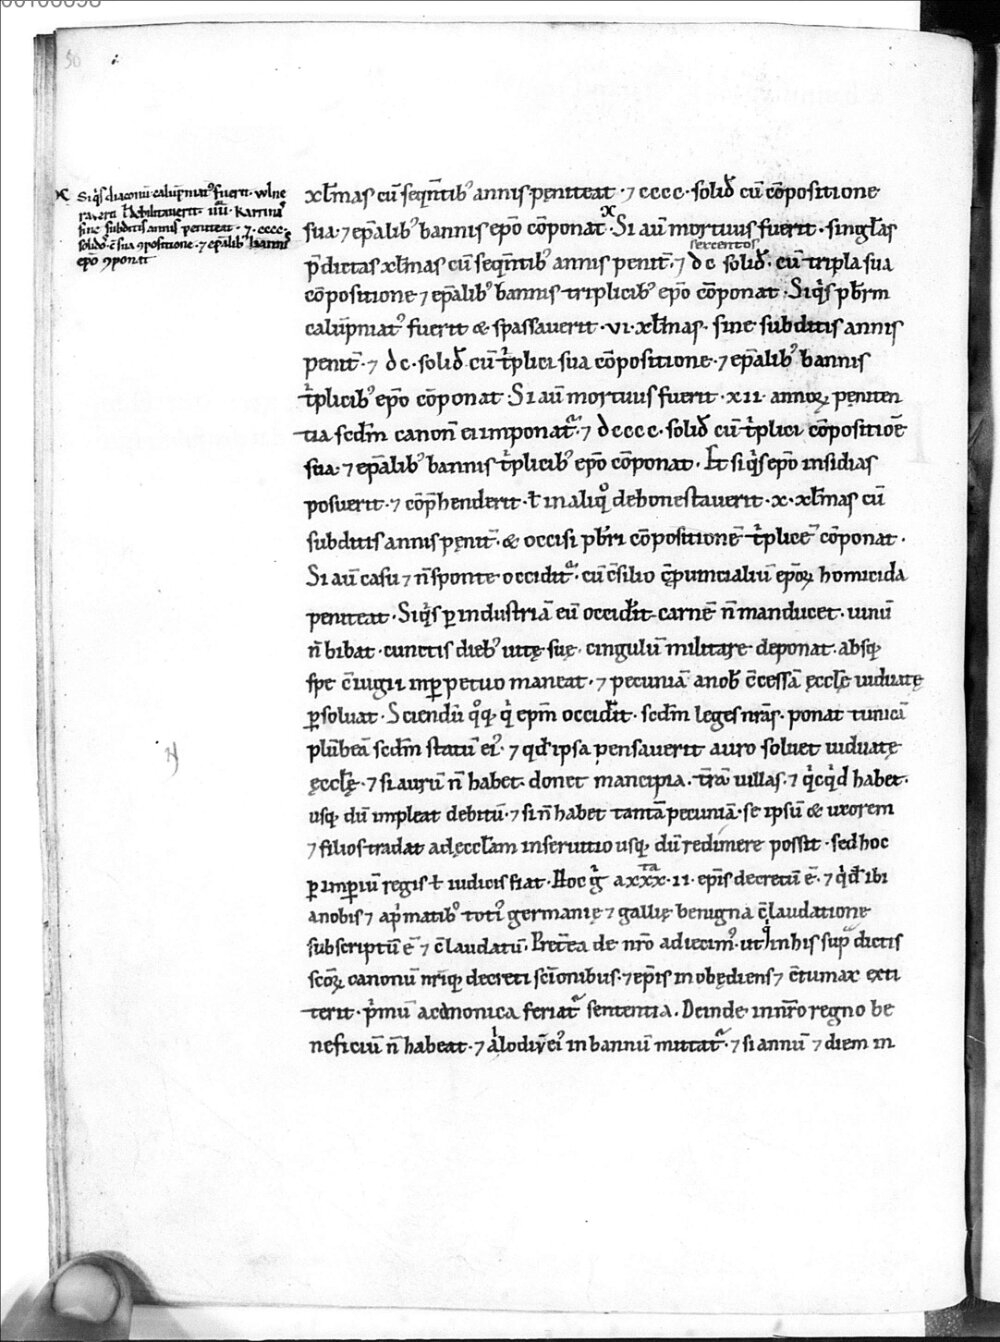 00106098
50
Siq̇s diaconū calūpniat᷒ fuerit · wlne
raverit t̄ debilitauerit · IIII · karrinis
sine subditis annis peniteat · ⁊ · cccc ·
solid c̄ sua ꝯpositione · ⁊ ep̄alib᷒ bannis
ep̄o ꝯponat
xl̄mas cū seqn̄tib᷒ annis peniteat · ⁊ cccc · solid cū cōpositione
sua · ⁊ ep̄alib᷒ bannis ep̄o cōponat · Si aū mortuus fuerit · singl̄as
p̄dictas xl̄mas cū seqn̄tib᷒ annis penit̄ · ⁊ dc solid · cū tripla sua
sexcentos
cōpositione ⁊ ep̄alib᷒ bannis triplicib᷒ ep̄o cōponat · Siq̇s pb̄rm
calūpniat᷒ fuerit & spassaverit · vi · xl̄mas · sine subditis annis
penit̄ · ⁊ dc · solid cū tⁱplici sua cōpositione · ⁊ ep̄alib᷒ bannis
tⁱplicib᷒ ep̄o cōponat Si aū mortuus fuerit · xii · annoꝝ peniten
tia scd̄m canon̄ ei imponat᷑ · ⁊ dcccc · solid cū tⁱplici cōpositiōe
sua · ⁊ ep̄alib᷒ bannis tⁱplicib᷒ ep̄o cōponat · Et siq̇s ep̄o insidias
posuerit · ⁊ cōp̄henderit · t̄ in aliq̊ dehonestaverit · x · xl̄mas cū
subditis annis penit̄ · & occisi pb̄ri cōpositionē tⁱplicē cōponat ·
Si aū casu ⁊ n̄ sponte occidit᷑ · cū c̄silio c̄puincialiū ep̄oꝝ homicida
peniteat · Siq̇s ꝑ industriā eū occiderit carnē n̄ manducet · uinū
n̄ bibat · cunctis dieb᷒ uitę suę · cingulū militare deponat · absq;
spe c̄iugii in ꝑpetuo maneat · ⁊ pecuniā a nob̄ c̄cessā ęccl̄ę uiduatę
ꝑsoluat · Sciendū q̊q; qⁱ ep̄m occiderit · scd̄m leges nr̄as · ponat tunicā
plūbeā scd̄m statū ei᷒ · ⁊ qd̄ ipsa pensaverit auro soluet uiduatę
ęccl̄ę · ⁊ si aurū n̄ habet · donet mancipia · tr̄ā uillas · ⁊ qⁱcqⁱd habet ·
usq; dū impleat debitū · ⁊ si n̄ habet tantā pecuniā · se ipsū & uxorem
⁊ filios tradat ad ęccl̄am in seruitio usq; dū redimere possit · sed hoc
ꝑ imperiū regis t̄ iudicis fiat · Hoc gⁱ a xxx · ii · ep̄is decretū ē · ⁊ qd̄ ibi
ta
a nobis ⁊ apⁱmatib᷒ toti᷒ germanię ⁊ gallię benigna c̄laudatione
subscriptū ē ⁊ c̄laudatū · Pret̄ea de nr̄o adiecim᷒ · ut qⁱ in his sup̄ dictis
scōꝝ canonū nr̄iq; decreti sc̄ionibus · ⁊ ep̄is inobędiens ⁊ c̄tumax exti
terit · pⁱmū a canonica feriat᷑ sententia · Deinde in nr̄o regno be
neficiū n̄ habeat · ⁊ alodiū ei᷒ in bannū mittat᷑ · ⁊ si annū ⁊ diem in